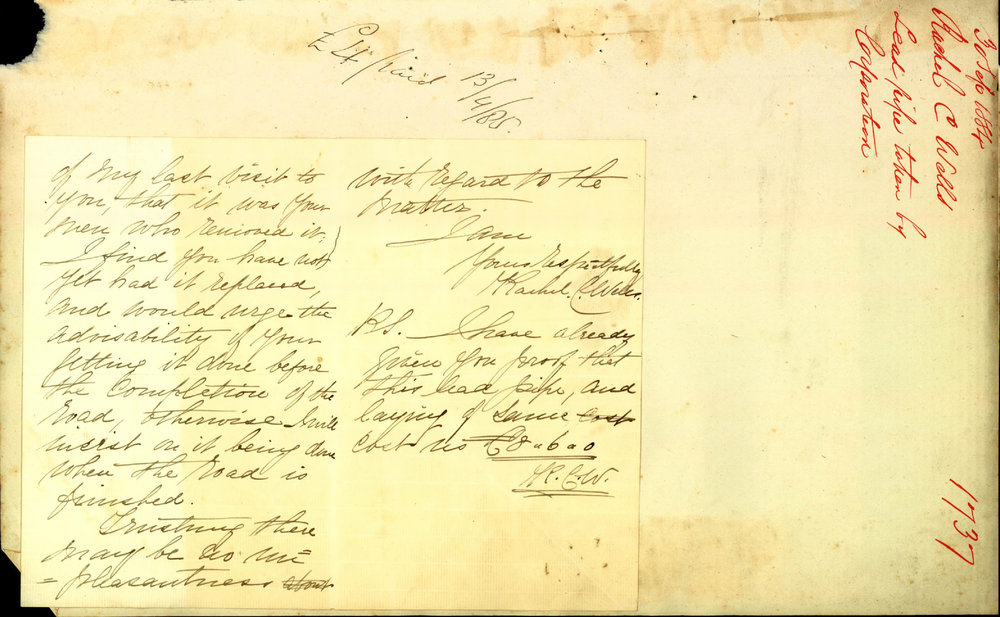 £4 paid 13/4/85.
of my last visit to
you, that it was your
men who removed it,
I find you have not
yet had it replaced,
and would urge the
advisability of your
getting it done before
the completion of the
road, otherwise I will
insist on it being done
when the road is
finished.
Trusting there
may be no un=
=pleasantness about
with regard to the
matter.
I am
Yours respectfully
Rachel C. Wells.
P.S. I have already
given you proof that
this lead pipe, and
laying of same cost
cost us £8-6-0
R.C.W.
30 Sep 1884
Rachel C Wells
Lead pipe taken by
Corporation
1737